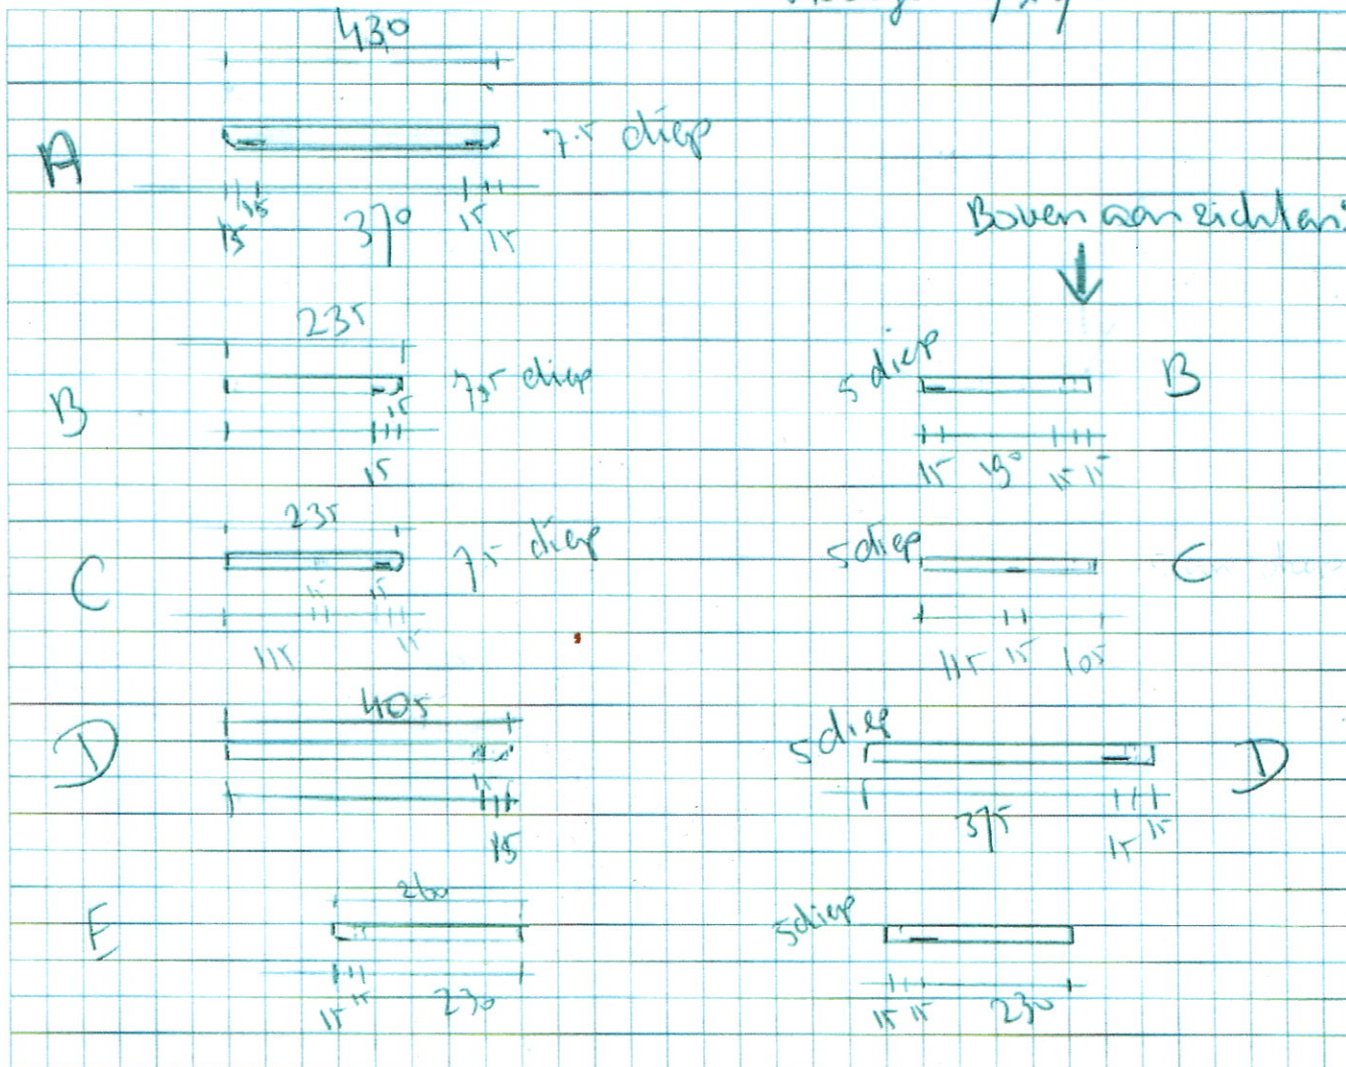 430
A
7.5 diep
15 15 370 15 15
Bovenaanzichten:
235
B
7,5 diep
15
15
5 diep
B
15 190 15 15
235
C
7,5 diep
15 15
115 15
5 diep
C
115 15 105
405
D
15
15
5 diep
D
375 15 15
260
E
15 15 230
5 diep
15 15 230